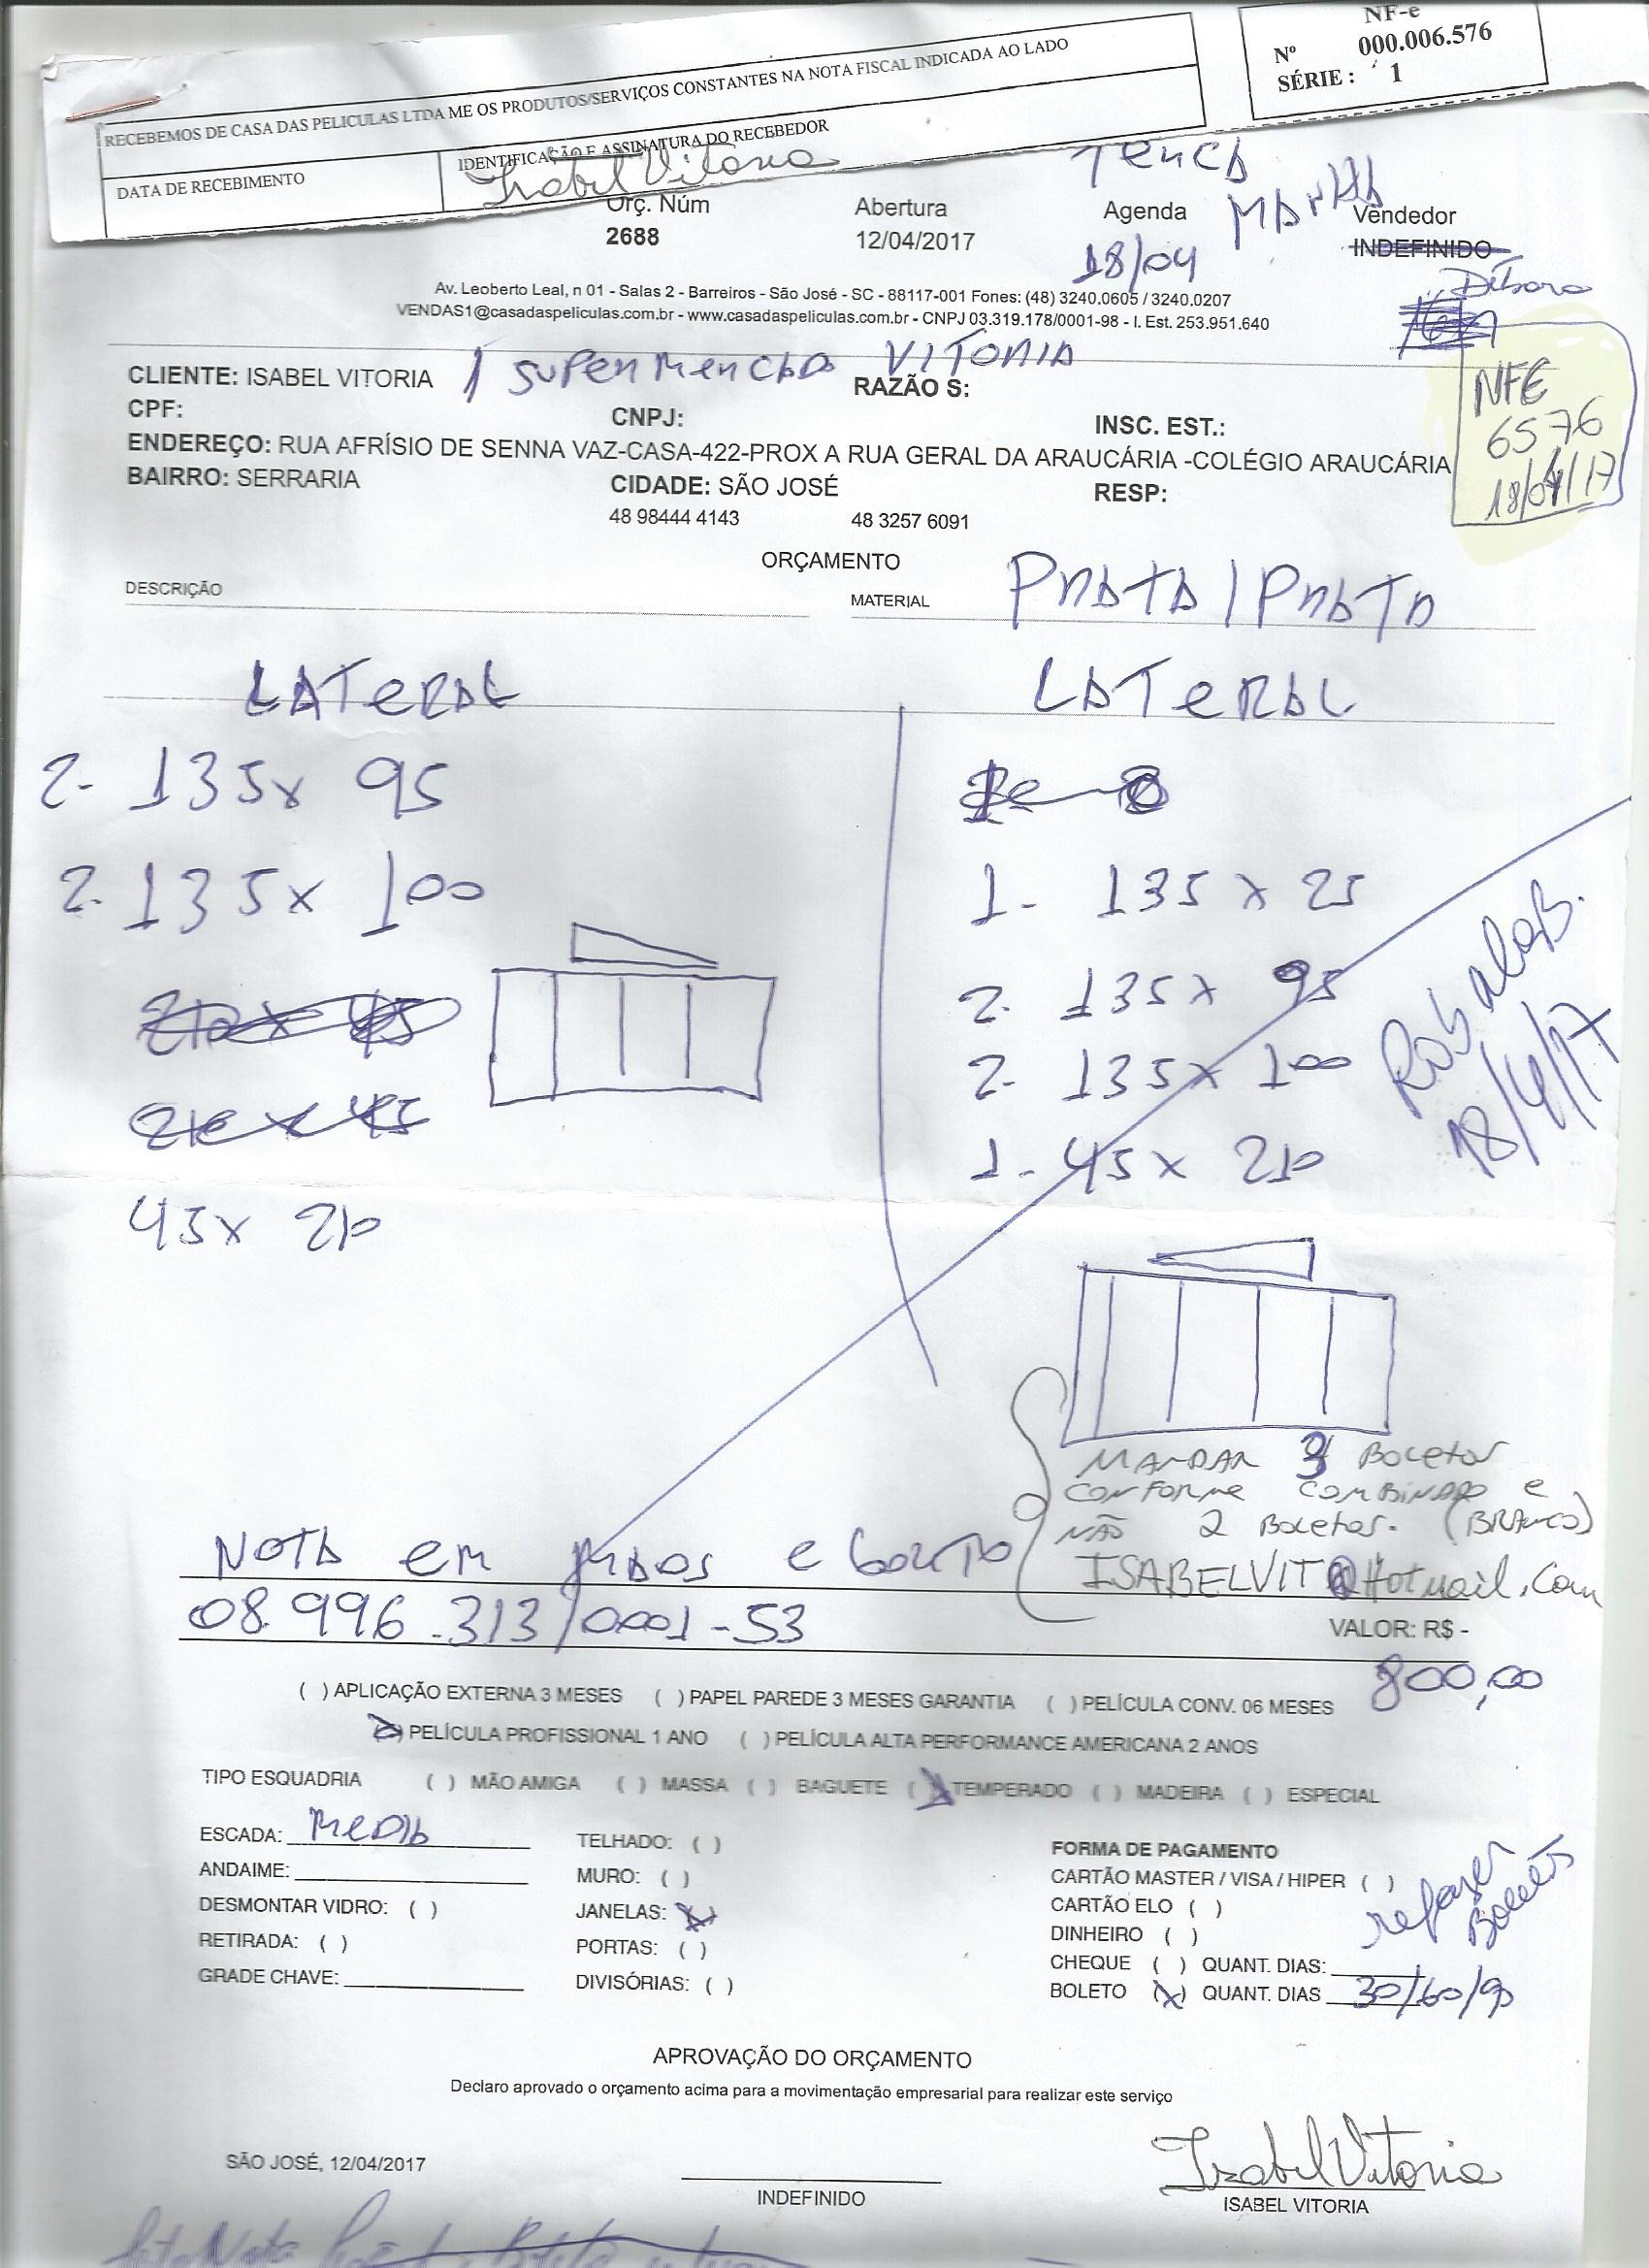 NF-e
Nº 000.006.576
SÉRIE : 1
RECEBEMOS DE CASA DAS PELICULAS LTDA ME OS PRODUTOS/SERVIÇOS CONSTANTES NA NOTA FISCAL INDICADA AO LADO
DATA DE RECEBIMENTO
IDENTIFICAÇÃO E ASSINATURA DO RECEBEDOR
Isabel Vitoria
TERÇA
Orç. Núm Abertura Agenda MANHÃ Vendedor
2688 12/04/2017 18/04 INDEFINIDO
Débora
Av. Leoberto Leal, n 01 - Salas 2 - Barreiros - São José - SC - 88117-001 Fones: (48) 3240.0605 / 3240.0207
VENDAS1@casadaspeliculas.com.br - www.casadaspeliculas.com.br - CNPJ 03.319.178/0001-98 - I. Est. 253.951.640
CLIENTE: ISABEL VITORIA / SUPERMERCADO VITORIA RAZÃO S:
NFE
6576
18/04/17
CPF: CNPJ: INSC. EST.:
ENDEREÇO: RUA AFRÍSIO DE SENNA VAZ-CASA-422-PROX A RUA GERAL DA ARAUCÁRIA -COLÉGIO ARAUCÁRIA
BAIRRO: SERRARIA CIDADE: SÃO JOSÉ RESP:
48 98444 4143 48 3257 6091
ORÇAMENTO
DESCRIÇÃO MATERIAL PRATA / PRATA
LATERAL LATERAL
2- 135x 95
2- 135x 100
45x 210
1- 135 x 25
2- 135x 95
2- 135x 100
1- 45x 210
18/4/17
MANDAR 3 BOLETOS
CONFORME COMBINADO E
NÃO 2 BOLETOS. (BRANCO)
ISABELVIT@Hotmail.com
NOTA em e boleto
08.996.313/0001-53
VALOR: R$ -
800,00
( ) APLICAÇÃO EXTERNA 3 MESES ( ) PAPEL PAREDE 3 MESES GARANTIA ( ) PELÍCULA CONV. 06 MESES
(X) PELÍCULA PROFISSIONAL 1 ANO ( ) PELÍCULA ALTA PERFORMANCE AMERICANA 2 ANOS
TIPO ESQUADRIA ( ) MÃO AMIGA ( ) MASSA ( ) BAGUETE (X) TEMPERADO ( ) MADEIRA ( ) ESPECIAL
ESCADA: MEDIA
ANDAIME:
DESMONTAR VIDRO: ( )
RETIRADA: ( )
GRADE CHAVE:
TELHADO: ( )
MURO: ( )
JANELAS: (X)
PORTAS: ( )
DIVISÓRIAS: ( )
FORMA DE PAGAMENTO
CARTÃO MASTER / VISA / HIPER ( )
CARTÃO ELO ( )
DINHEIRO ( )
CHEQUE ( ) QUANT. DIAS:
BOLETO (X) QUANT. DIAS 30/60/90
refazer
Boletos
APROVAÇÃO DO ORÇAMENTO
Declaro aprovado o orçamento acima para a movimentação empresarial para realizar este serviço
SÃO JOSÉ, 12/04/2017
INDEFINIDO
Isabel Vitoria
ISABEL VITORIA